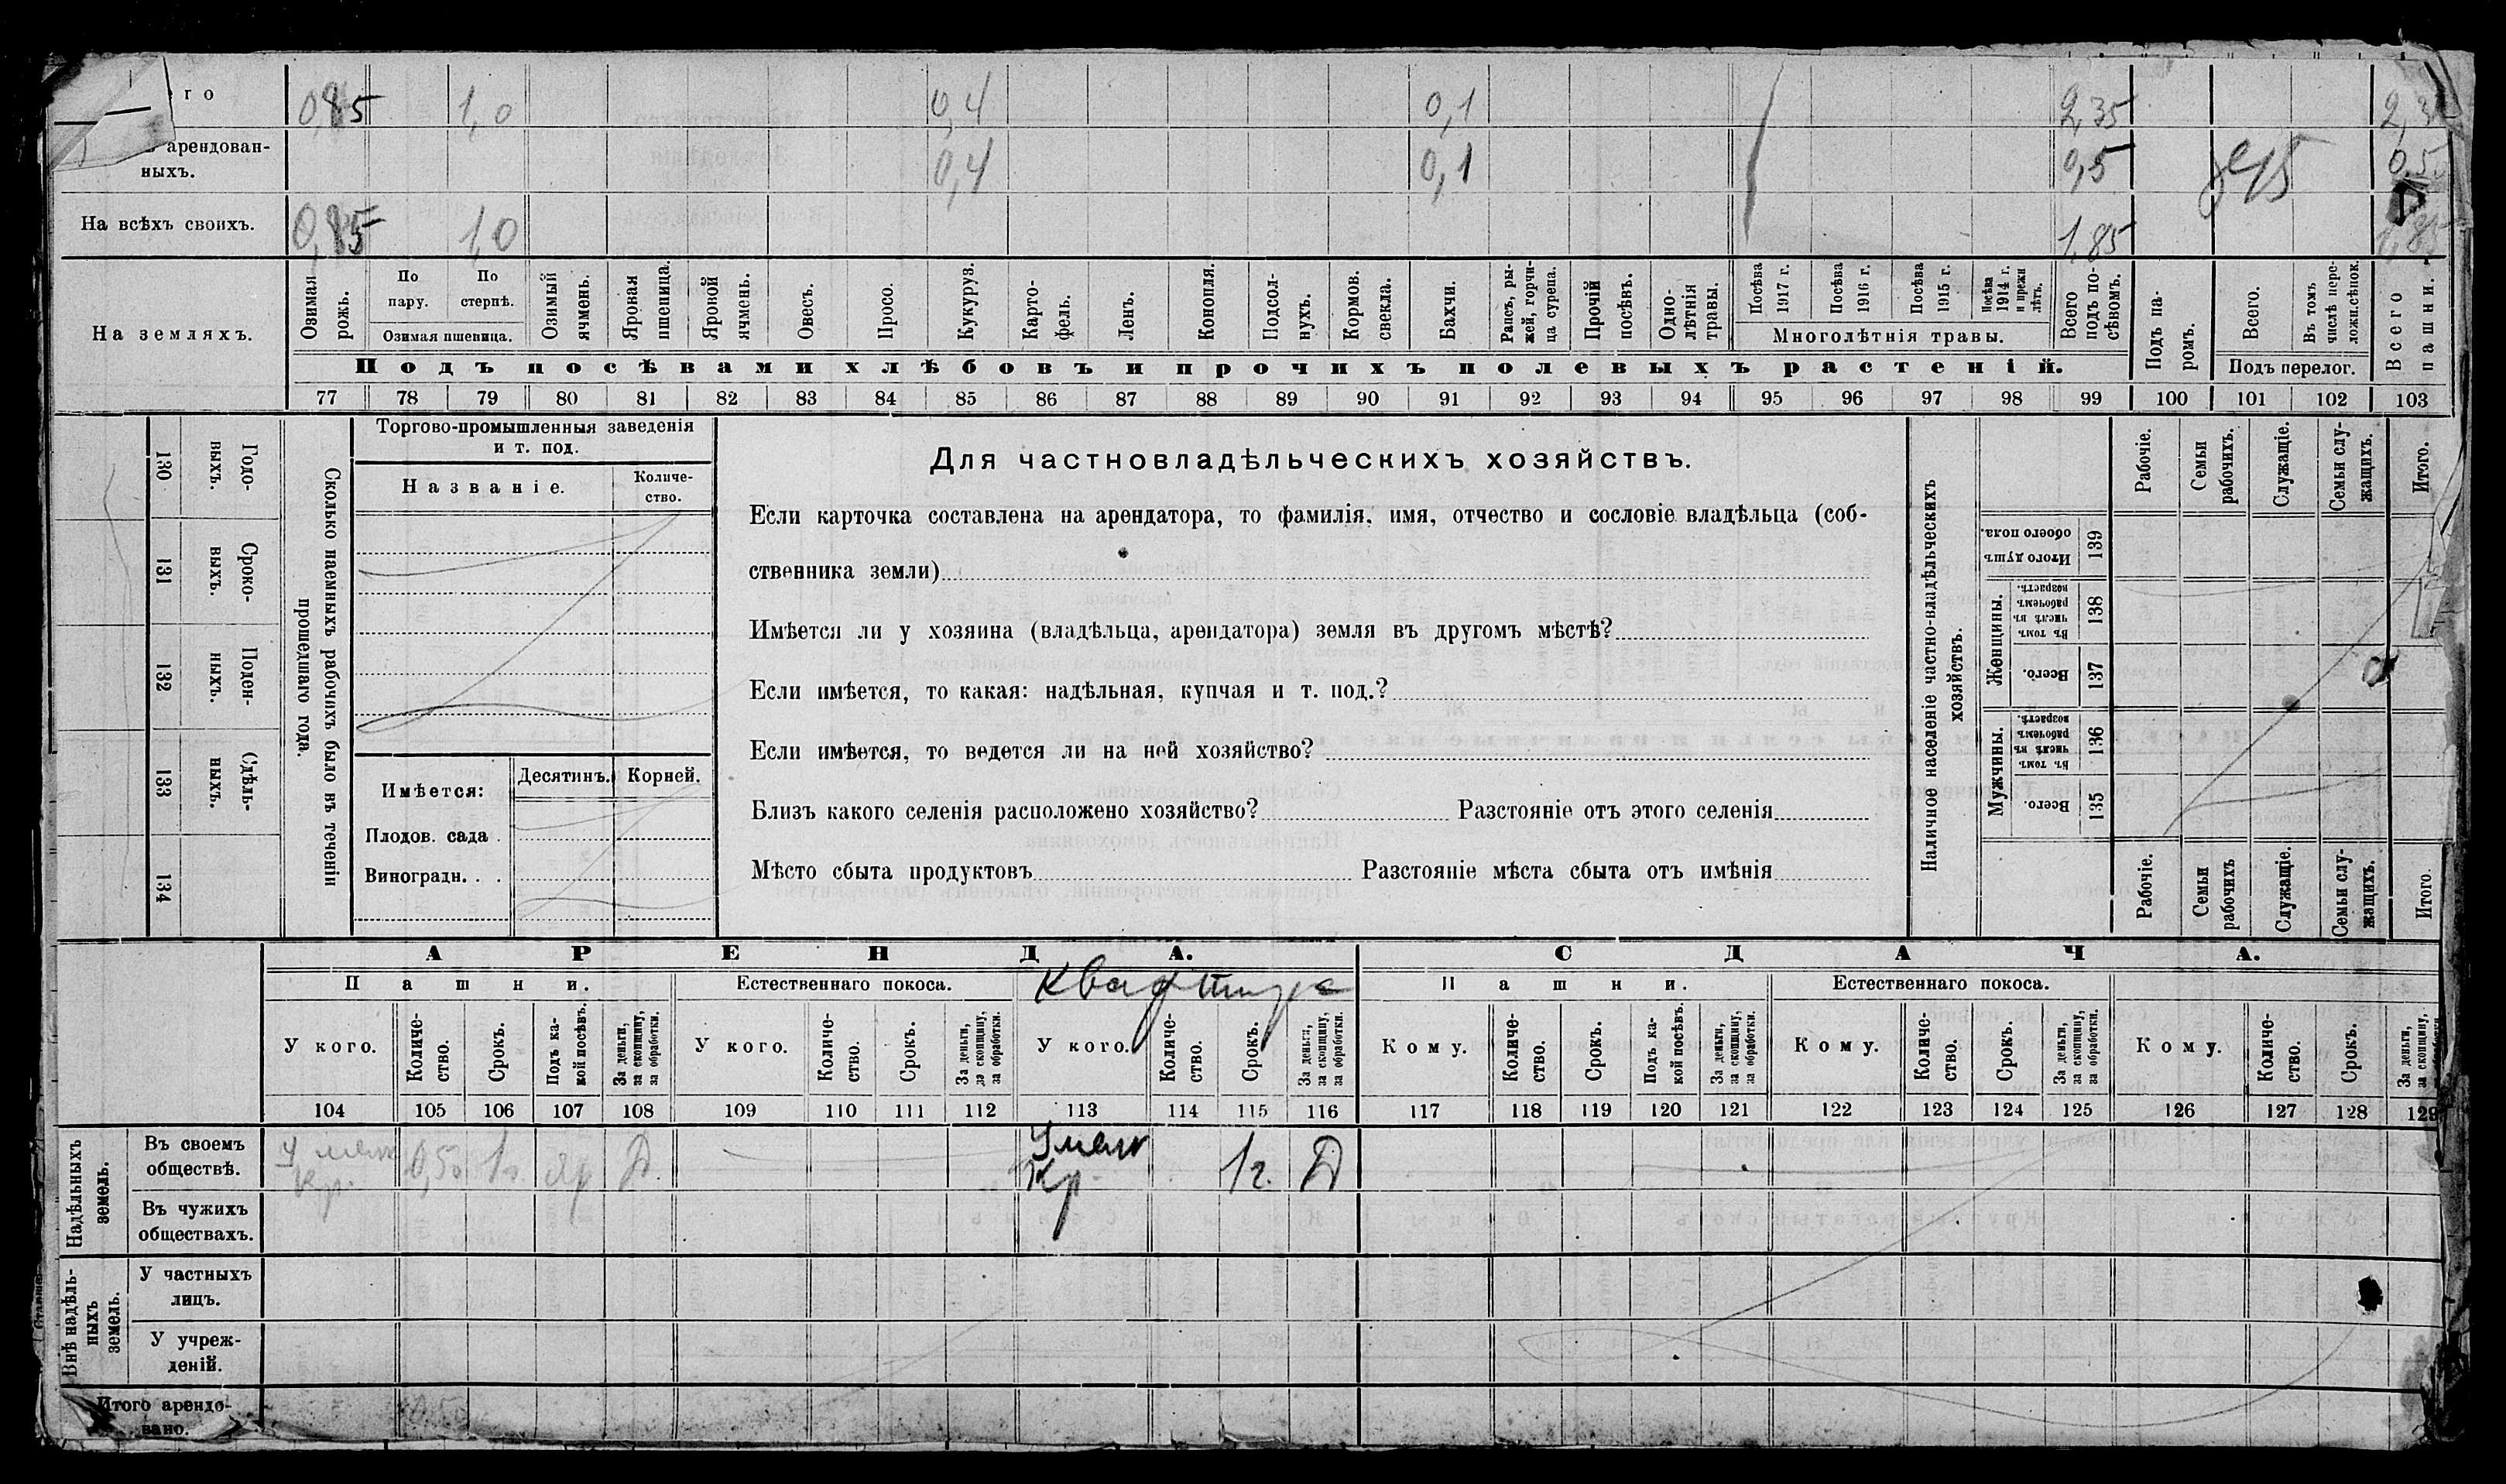 его 0,85 1,0 0,4 0,1 2,35
арендован-
ныхъ. 0,4 0,1 0,5 0,5
На всѣхъ своихъ. 0,85 1,0 1,85 1,85
На земляхъ.
Озимая рожь.
По пару.
По стернѣ.
Озимая пшеница.
Озимый ячмень.
Яровая пшеница.
Яровой ячмень.
Овесъ.
Просо.
Кукуруз.
Карто-
фель.
Ленъ.
Конопля.
Подсол-
нухъ.
Кормов.
свекла.
Бахчи.
Рапсъ, ры-
жей, горчи-
ца сурепа.
Прочій
посѣвъ.
Одно-
лѣтнія
травы.
Посѣва
1917 г.
Посѣва
1916 г.
Посѣва
1915 г.
Посѣва
1914 г.
и прежн
лѣтъ.
Многолѣтнія травы.
Всего
подъ по-
сѣвомъ.
Подъ посѣвами хлѣбовъ и прочихъ полевыхъ растеній.
Подъ па-
ромъ.
Всего.
Въ томъ
числѣ пере-
ложн.сѣнок.
Подъ перелог.
Всего
пашни.
77 78 79 80 81 82 83 84 85 86 87 88 89 90 91 92 93 94 95 96 97 98 99 100 101 102 103
130 Годо-
ныхъ.
131 Сроко-
выхъ.
132 Поден-
ныхъ.
133 Сдѣль-
ныхъ.
134
Сколько наемныхъ рабочихъ было въ теченіи
прошедшаго года.
Торгово-промышленныя заведенія
и т. под.
Названіе.
Количе-
ство.
Имѣется:
Десятинъ.
Корней.
Плодов. сада .
Виноградн. . .
Для частновладѣльческихъ хозяйствъ.
Если карточка составлена на арендатора, то фамилія, имя, отчество и сословіе владѣльца (соб-
ственника земли)
Имѣется ли у хозяина (владѣльца, арендатора) земля въ другомъ мѣстѣ?
Если имѣется, то какая: надѣльная, купчая и т. под.?
Если имѣется, то ведется ли на ней хозяйство?
Близъ какого селенія расположено хозяйство? Разстояніе отъ этого селенія
Мѣсто сбыта продуктовъ Разстояніе мѣста сбыта отъ имѣнія
Наличное населеніе частно-владѣльческихъ
хозяйствъ.
Рабочіе.
Семьи
рабочихъ.
Служащіе.
Семьи слу-
жащихъ.
Итого.
Итого душъ
обоего пола.
139
Женщины.
Въ томъ
числѣ въ
рабочемъ
возрастѣ.
138
Всего.
137
Мужчины.
Въ томъ
числѣ въ
рабочемъ
возрастѣ.
136
Всего.
135
Рабочіе.
Семьи
рабочихъ
Служащіе.
Семьи слу-
жащихъ.
Итого.
АРЕНДА. СДАЧА.
Пашни. Естественнаго покоса. Квартира Пашни. Естественнаго покоса.
У кого.
Количе-
ство.
Срокъ.
Подъ ка-
кой посѣвъ.
За деньги,
за скопщину,
за обработки.
У кого.
Количе-
ство.
Срокъ.
За деньги,
за скопщину,
за обработки.
У кого.
Количе-
ство.
Срокъ.
За деньги,
за скопщину,
за обработки.
Кому.
Количе-
ство.
Срокъ.
Подъ ка-
кой посѣвъ.
За деньги,
за скопщину,
за обработки.
Кому.
Количе-
ство.
Срокъ.
За деньги,
за скопщину,
за обработки.
Кому.
Количе-
ство.
Срокъ.
За деньги,
за скопщину,
104 105 106 107 108 109 110 111 112 113 114 115 116 117 118 119 120 121 122 123 124 125 126 127 128 129
Надѣльныхъ
земель.
Въ своемъ
обществѣ. Кр. 0,5 1г. яр Д. Кр. 1г. Д
Въ чужихъ
обществахъ.
Внѣ надѣль-
ныхъ
земель.
У частныхъ
лицъ.
У учреж-
деній.
Итого арендо-
вано.